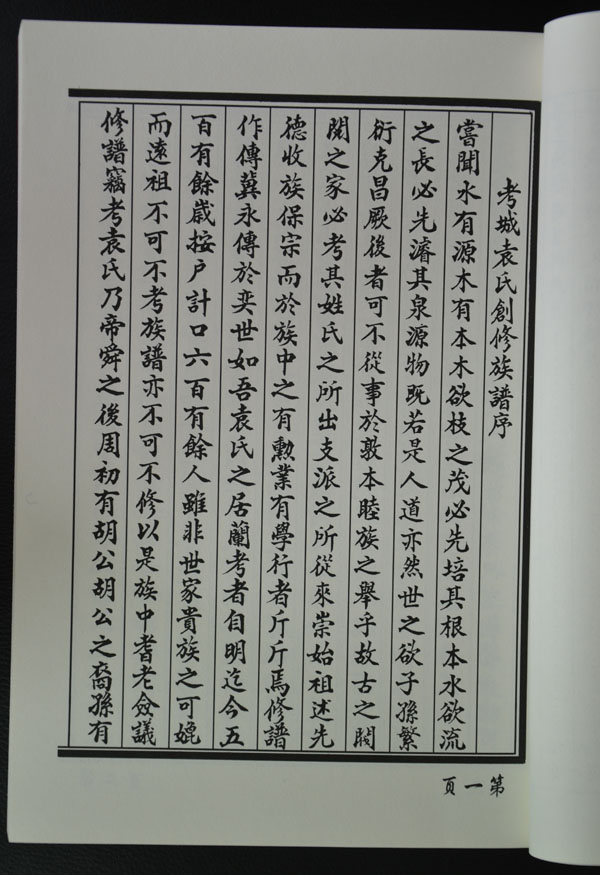 考城袁氏創修族譜序
嘗聞水有源木有本木欲枝之茂必先培其根本水欲流
之長必先濬其泉源物既若是人道亦然世之欲子孫繁
衍克昌厥後者可不從事於敦本睦族之舉乎故古之閥
閱之家必考其姓氏之所出支派之所從來崇始祖述先
德收族保宗而於族中之有勳業有學行者斤斤焉修譜
作傳冀永傳於奕世如吾袁氏之居蘭考者自明迄今五
百有餘歲按户計口六百有餘人雖非世家貴族之可媲
而遠祖不可不考族譜亦不可不修以是族中耆老僉議
修譜竊考袁氏乃帝舜之後周初有胡公胡公之裔孫有
第一頁